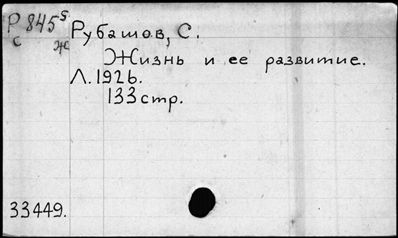 Р 845 s
с ж
Рубашов, С.
Жизнь и ее развитие.
Л. 1926.
133 стр.
33449.